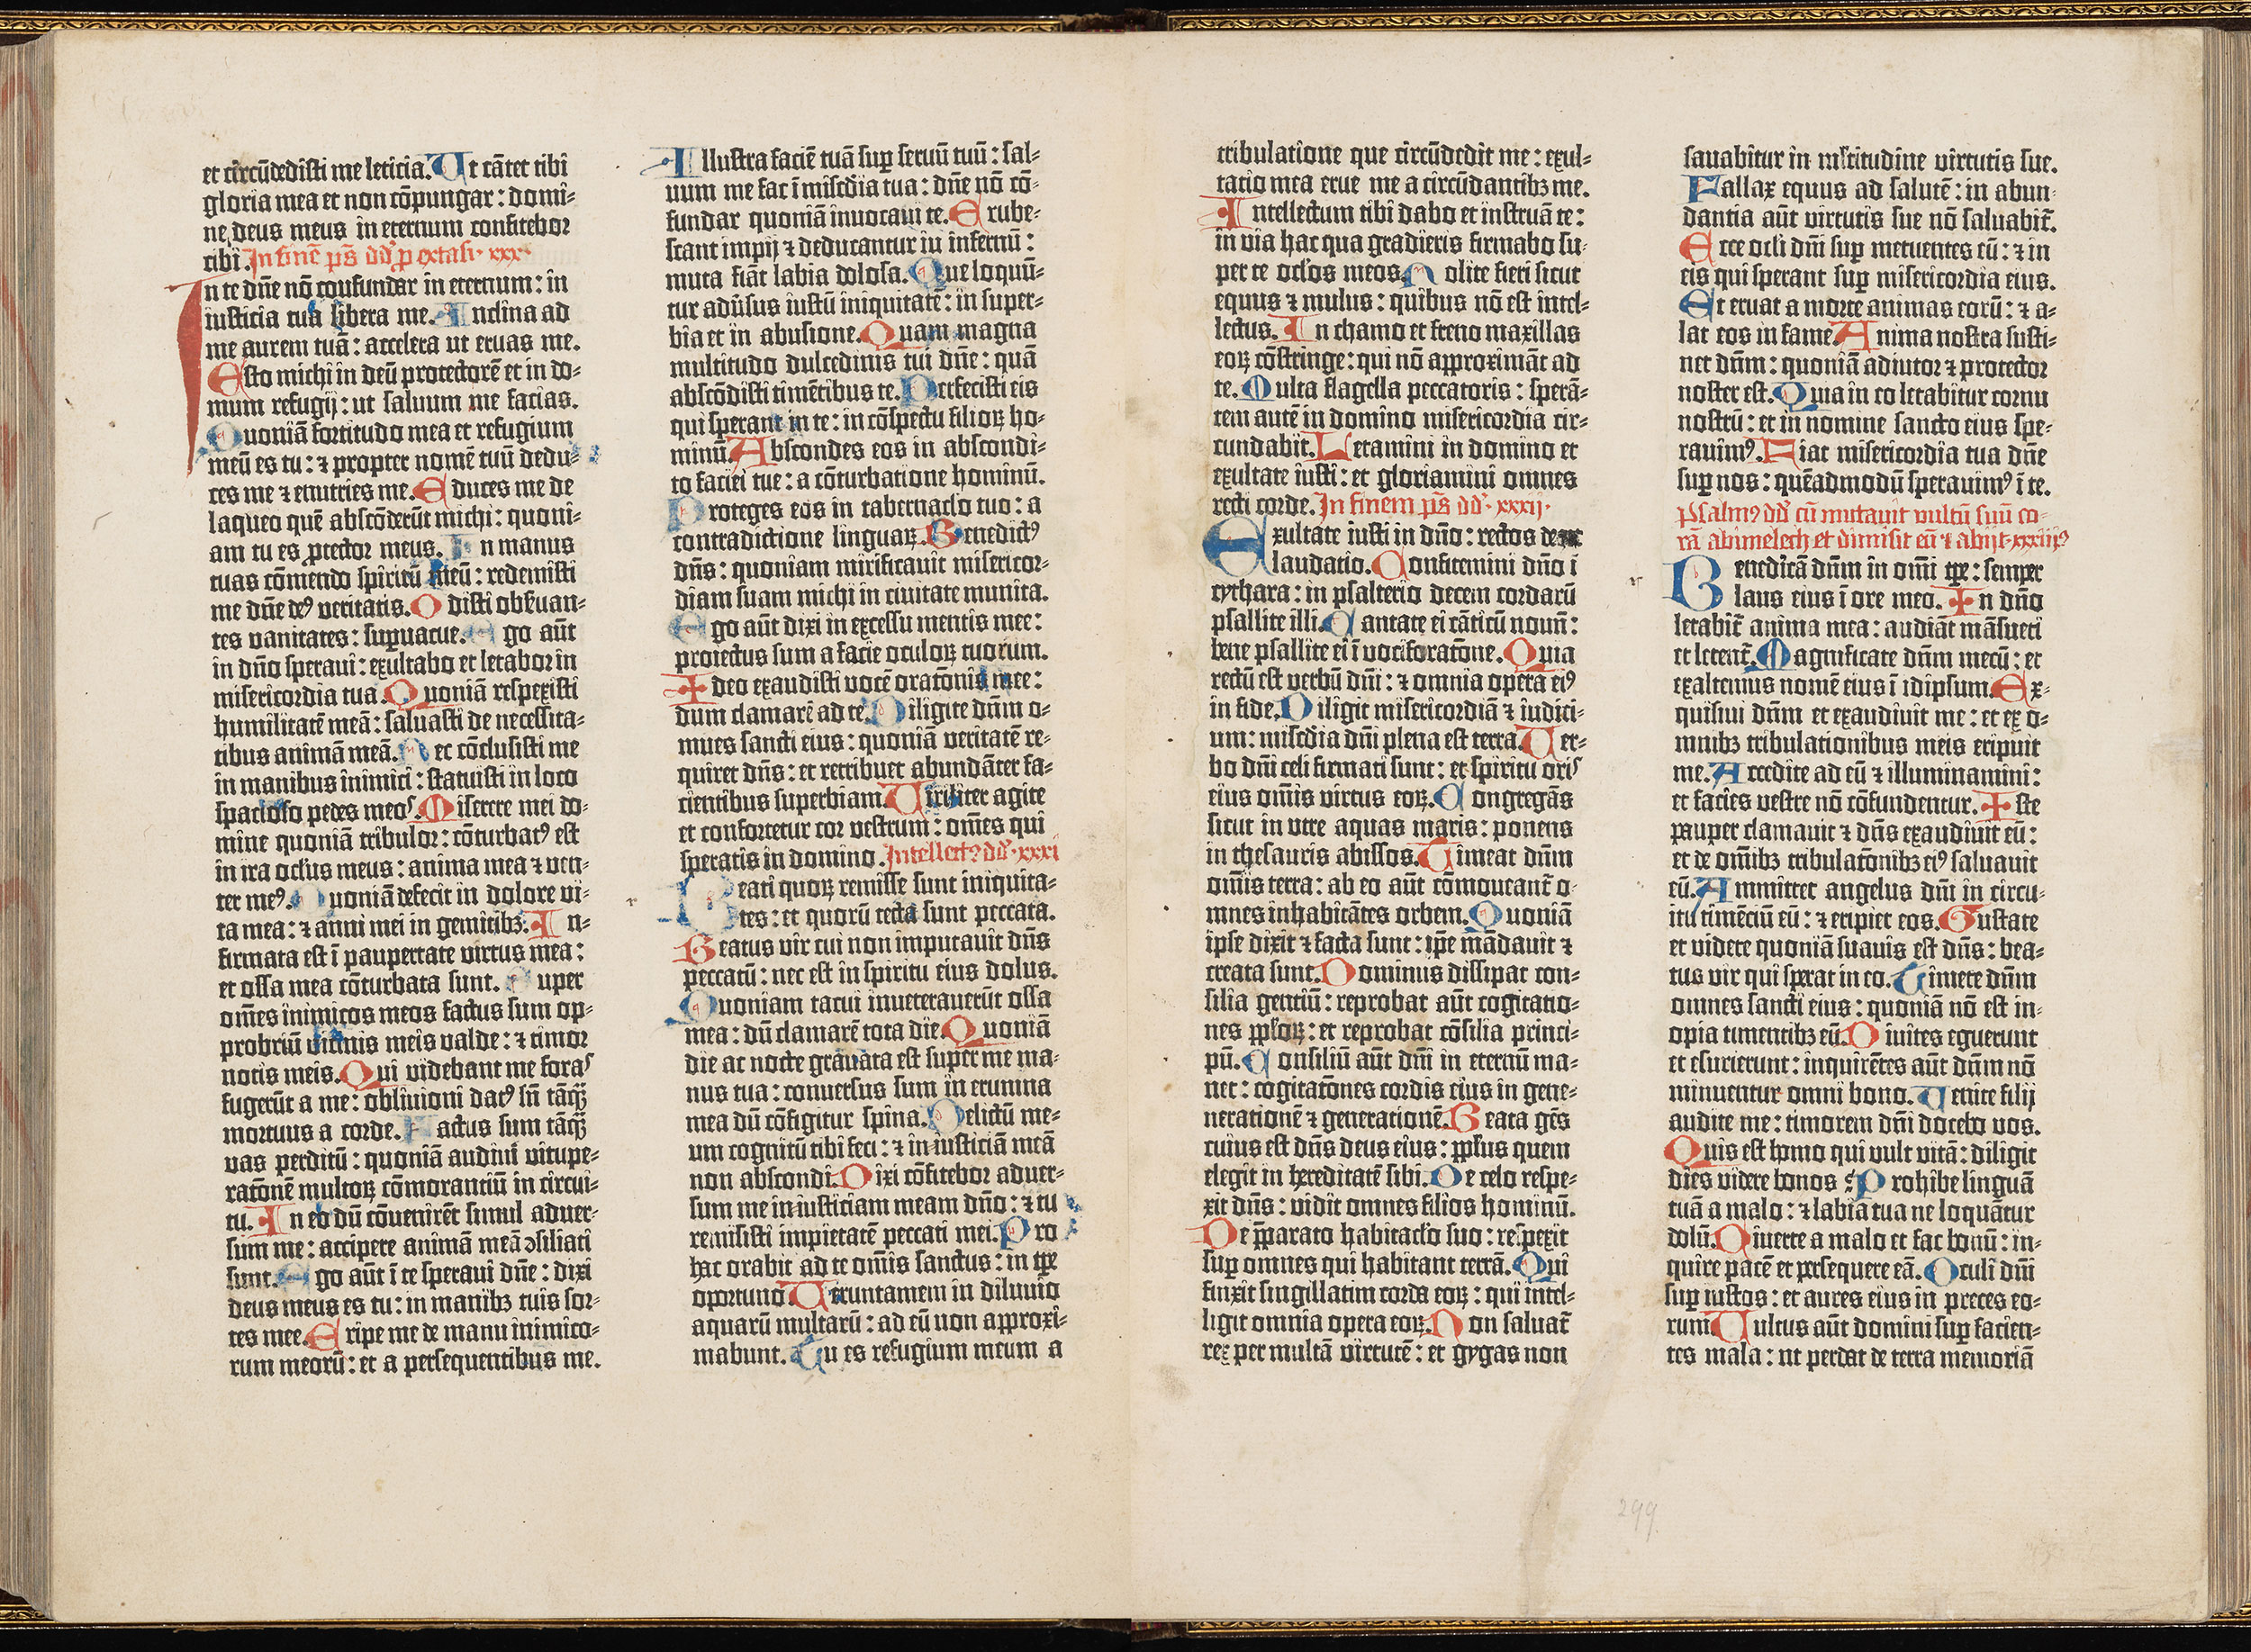 et circūdedisti me leticia. Ut cātet tibi
gloria mea et non cōpungar: domi-
ne deus meus in eternum confitebor
tibi. In finē ps̄ dd̄ p extasi · xxx ·
In te dn̄e nō confundar in eternum: in
iusticia tua libera me. Inclina ad
me aurem tuā: accelera ut eruas me.
Esto michi in deū protectorē et in do-
mum refugij: ut saluum me facias.
Quoniā fortitudo mea et refugium
meū es tu: ⁊ propter nomē tuū dedu-
ces me ⁊ enutries me. Educes me de
laqueo quē abscōderūt michi: quoni-
am tu es ꝓtector meus. In manus
tuas cōmendo spiritū meū: redemisti
me dn̄e deꝰ veritatis. Odisti obs̄uan-
tes vanitates: supuacue. Ego aūt
in dn̄o speraui: exultabo et letabor in
misericordia tua. Quoniā respexisti
humilitatē meā: saluasti de necessita-
tibus animā meā. Nec cōclusisti me
in manibus inimici: statuisti in loco
spacioso pedes meos. Miserere mei do-
mine quoniā tribulor: cōturbatꝰ est
in ira oclus meus: anima mea ⁊ ven-
ter meꝰ. Quoniā defecit in dolore vi-
ta mea: ⁊ anni mei in gemitibꝫ. In-
firmata est ī paupertate virtus mea:
et ossa mea cōturbata sunt. Super
om̄es inimicos meos factus sum op-
probriū vicinis meis valde: ⁊ timor
notis meis. Qui videbant me foras
fugerūt a me: obliuioni datꝰ sū tāꝗ̄
mortuus a corde. Factus sum tāꝗ̄
vas perditū: quoniā audiui vitupe-
ratōnē multoꝝ cōmorantiū in circui-
tu. In eo dū cōuenirēt simul aduer-
sum me: accipere animā meā ↄsiliati
sunt. Ego aūt ī te speraui dn̄e: dixi
deus meus es tu: in manibꝫ tuis sor-
tes mee. Eripe me de manu inimico-
rum meorū: et a persequentibus me.
Illustra faciē tuā sup seruū tuū: sal-
uum me fac ī mis̄cdia tua: dn̄e nō cō-
fundar quoniā inuocaui te. Erube-
scant impij ⁊ deducantur in infernū:
muta fiāt labia dolosa. Que loquū-
tur adūsus iustū iniquitatē: in super-
bia et in abusione. Quam magna
multitudo dulcedinis tui dn̄e: quā
abscōdisti timētibus te. Perfecisti eis
qui sperant in te: in cōspectu filioꝝ ho-
minū. Abscondes eos in abscondi-
to faciei tue: a cōturbatione hominū.
Proteges eos in tabernaclo tuo: a
contradictione linguaꝝ. Benedictꝰ
dn̄s: quoniam mirificauit misericor-
diam suam michi in ciuitate munita.
Ego aūt dixi in excessu mentis mee:
proiectus sum a facie oculoꝝ tuorum.
Ideo exaudisti vocē oratōnis mee:
dum clamarē ad te. Diligite dn̄m o-
mnes sancti eius: quoniā veritatē re-
quiret dn̄s: et retribuet abundāter fa-
cientibus superbiam. Viriliter agite
et confortetur cor vestrum: om̄es qui
speratis in domino. Intellectꝰ dd̄ · xxxi
Beati quoꝝ remisse sunt iniquita-
tes: et quorū tecta sunt peccata.
Beatus vir cui non imputauit dn̄s
peccatū: nec est in spiritu eius dolus.
Quoniam tacui inueterauerūt ossa
mea: dū clamarē tota die. Quoniā
die ac nocte grauata est super me ma-
nus tua: conuersus sum in erumna
mea dū cōfigitur spina. Delictū me-
um cognitū tibi feci: ⁊ in iusticiā meā
non abscondi. Dixi cōfitebor aduer-
sum me in iusticiam meam dn̄o: ⁊ tu
remisisti impietatē peccati mei. Pro
hac orabit ad te om̄is sanctus: in tp̄e
oportuno. Veruntamen in diluuio
aquarū multarū: ad eū non approxi-
mabunt. Tu es refugium meum a
tribulatione que circūdedit me: exul-
tatio mea erue me a circūdantibꝫ me.
Intellectum tibi dabo et instruā te:
in via hac qua gradieris firmabo su-
per te oclos meos. Nolite fieri sicut
equus ⁊ mulus: quibus nō est intel-
lectus. In chamo et freno maxillas
eoꝝ cōstringe: qui nō approximāt ad
te. Multa flagella peccatoris: sperā-
tem autē in domino misericordia cir-
cundabit. Letamini in domino et
exultate iusti: et gloriamini omnes
recti corde. In finem ps̄ dd̄ · xxxij ·
Exultate iusti in dn̄o: rectos decet
laudatio. Confitemini dn̄o ī
cythara: in psalterio decem cordarū
psallite illi. Cantate ei cāticū nouū:
bene psallite ei ī vociferatōne. Quia
rectū est verbū dn̄i: ⁊ omnia opera eiꝰ
in fide. Diligit misericordiā ⁊ iudici-
um: mis̄cdia dn̄i plena est terra. Ver-
bo dn̄i celi firmati sunt: et spiritu oris
eius om̄is virtus eoꝝ. Congregās
sicut in vtre aquas maris: ponens
in thesauris abissos. Timeat dn̄m
om̄is terra: ab eo aūt cōmoueant᷑ o-
mnes inhabitātes orbem. Quoniā
ipse dixit ⁊ facta sunt: ip̄e mādauit ⁊
creata sunt. Dominus dissipat con-
silia gentiū: reprobat aūt cogitatio-
nes pploꝝ: et reprobat cōsilia princi-
pū. Consiliū aūt dn̄i in eternū ma-
net: cogitatōnes cordis eius in gene-
nerationē ⁊ generationē. Beata gēs
cuius est dn̄s deus eius: pplus quem
elegit in hereditatē sibi. De celo respe-
xit dn̄s: vidit omnes filios hominū.
De p̄parato habitaclo suo: respexit
sup omnes qui habitant terrā. Qui
finxit singillatim corda eoꝝ: qui intel-
ligit omnia opera eoꝝ. Non saluat᷑
rex per multā virtutē: et gygas non
sauabitur in multitudine virtutis sue.
Fallax equus ad salutē: in abun-
dantia aūt virtutis sue nō saluabit᷑.
Ecce ocli dn̄i sup metuentes eū: ⁊ in
eis qui sperant sup misericordia eius.
Et eruat a morte animas eorū: ⁊ a-
lat eos in fame. Anima nostra susti-
net dn̄m: quoniā adiutor ⁊ protector
noster est. Quia in eo letabitur cornu
nostrū: et in nomine sancto eius spe-
rauimꝰ. Fiat misericordia tua dn̄e
sup nos: quēadmodū sperauimꝰ ī te.
Psalmꝰ dd̄ cū mutauit vultū suū co-
rā abimelech et dimisit eū ⁊ abijt · xxxiij ·
Benedicā dn̄m in om̄i tp̄e: semper
laus eius ī ore meo. In dn̄o
letabit᷑ anima mea: audiāt māsueti
et letent᷑. Magnificate dn̄m mecū: et
exaltemus nomē eius ī idipsum. Ex-
quisiui dn̄m et exaudiuit me: et ex o-
mnibꝫ tribulationibus meis eripuit
me. Accedite ad eū ⁊ illuminamini:
et facies vestre nō cōfundentur. Iste
pauper clamauit ⁊ dn̄s exaudiuit eū:
et de om̄ibꝫ tribulatōnibꝫ eiꝰ saluauit
eū. Ammittet angelus dn̄i in circu-
itu timēciū eū: ⁊ eripiet eos. Gustate
et videte quoniā suauis est dn̄s: bea-
tus vir qui sperat in eo. Timete dn̄m
omnes sancti eius: quoniā nō est in-
opia timentibꝫ eū. Diuites eguerunt
et esurierunt: inquirētes aūt dn̄m nō
minuentur omni bono. Venite filij
audite me: timorem dn̄i docebo vos.
Quis est homo qui vult vitā: diligit
dies videre bonos? Prohibe linguā
tuā a malo: ⁊ labia tua ne loquātur
dolū. Diuerte a malo et fac bonū: in-
quire pacē et persequere eā. Oculi dn̄i
sup iustos: et aures eius in preces eo-
rum. Vultus aūt domini sup facien-
tes mala: ut perdat de terra memoriā
299